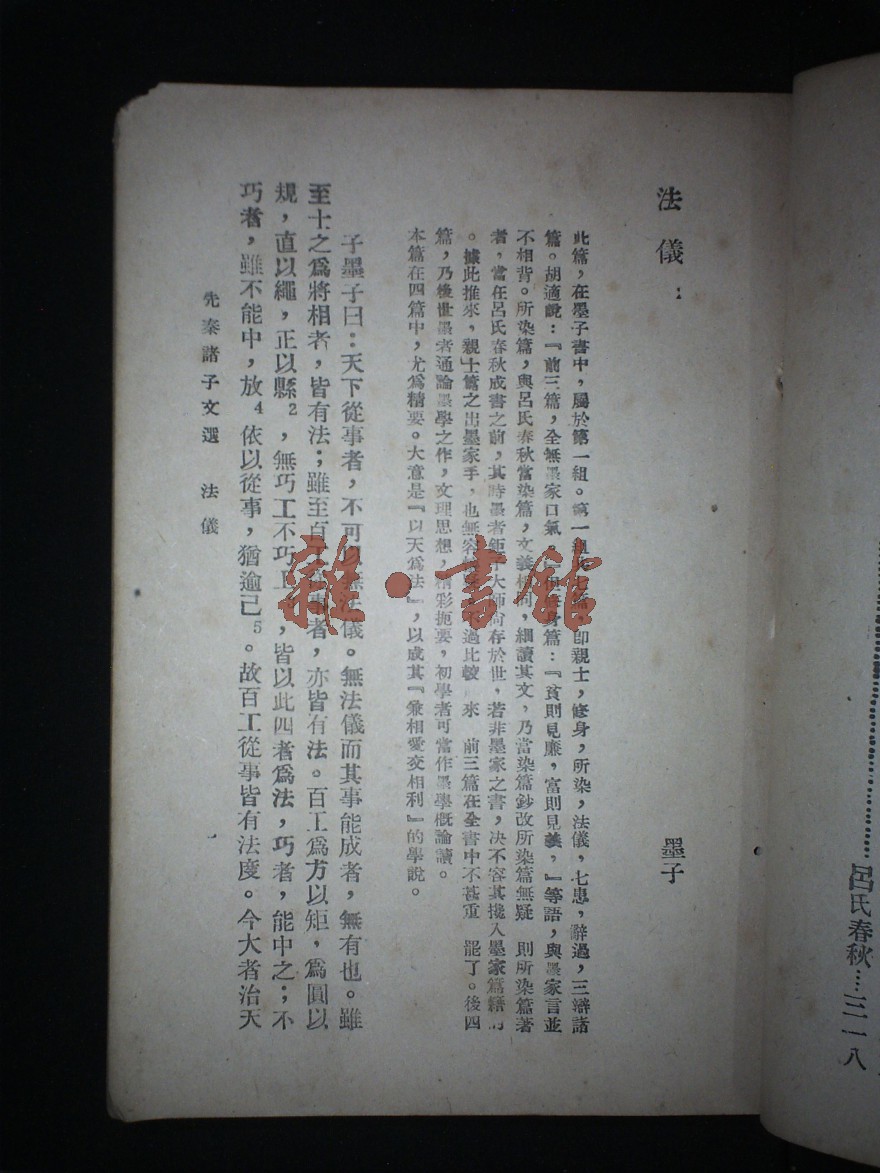 呂氏春秋…三一八
法儀：
墨子
此篇，在墨子書中，屬於第一組。第一組共七篇，卽親士，修身，所染，法儀，七患，辭過，三辯諸
篇。胡適說：『前三篇，全無墨家口氣。』但修身篇：『貧則見廉，富則見義，』等語，與墨家言並
不相背。所染篇，與呂氏春秋當染篇，文義相同，細讀其文，乃當染篇鈔改所染篇無疑 則所染篇著
者，當在呂氏春秋成書之前，其時墨者鉅子大師尙存於世，若非墨家之書，决不容其攙入墨家篇籍
。據此推來，親士篇之出墨家手，也無容 過比較 來 前三篇在全書中不甚重 罷了。後四
篇，乃後世墨者通論墨學之作，文理思想，精彩扼要，初學者可當作墨學概論讀。
本篇在四篇中，尤爲精要。大意是『以天爲法』，以成其『兼相愛交相利』的學說。
子墨子曰：天下從事者，不可以無法儀。無法儀而其事能成者，無有也。雖
至士之爲將相者，皆有法；雖至百工從事者，亦皆有法。百工爲方以矩，爲圓以
規，直以繩，正以縣2，無巧工不巧工，皆以此四者爲法，巧者，能中之；不
巧者，雖不能中，放4依以從事，猶逾己5。故百工從事皆有法度。今大者治天
先秦諸子文選 法儀
雜·書館